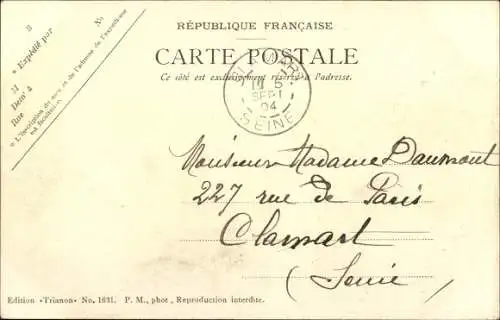 RÉPUBLIQUE FRANÇAISE
CARTE POSTALE
Ce côté est exclusivement réservé à l'adresse.
No
Expédié par
M
Dem' à
Rue
* L'inscription du nom et de l'adresse de l'expéditeur
est facultative.
CLAMART
5
SEPT
04
SEINE
Monsieur Madame Daumont
227 rue de Paris
Clamart
(Seine)
Edition «Trianon» No. 1631. P. M., phot., Reproduction interdite.